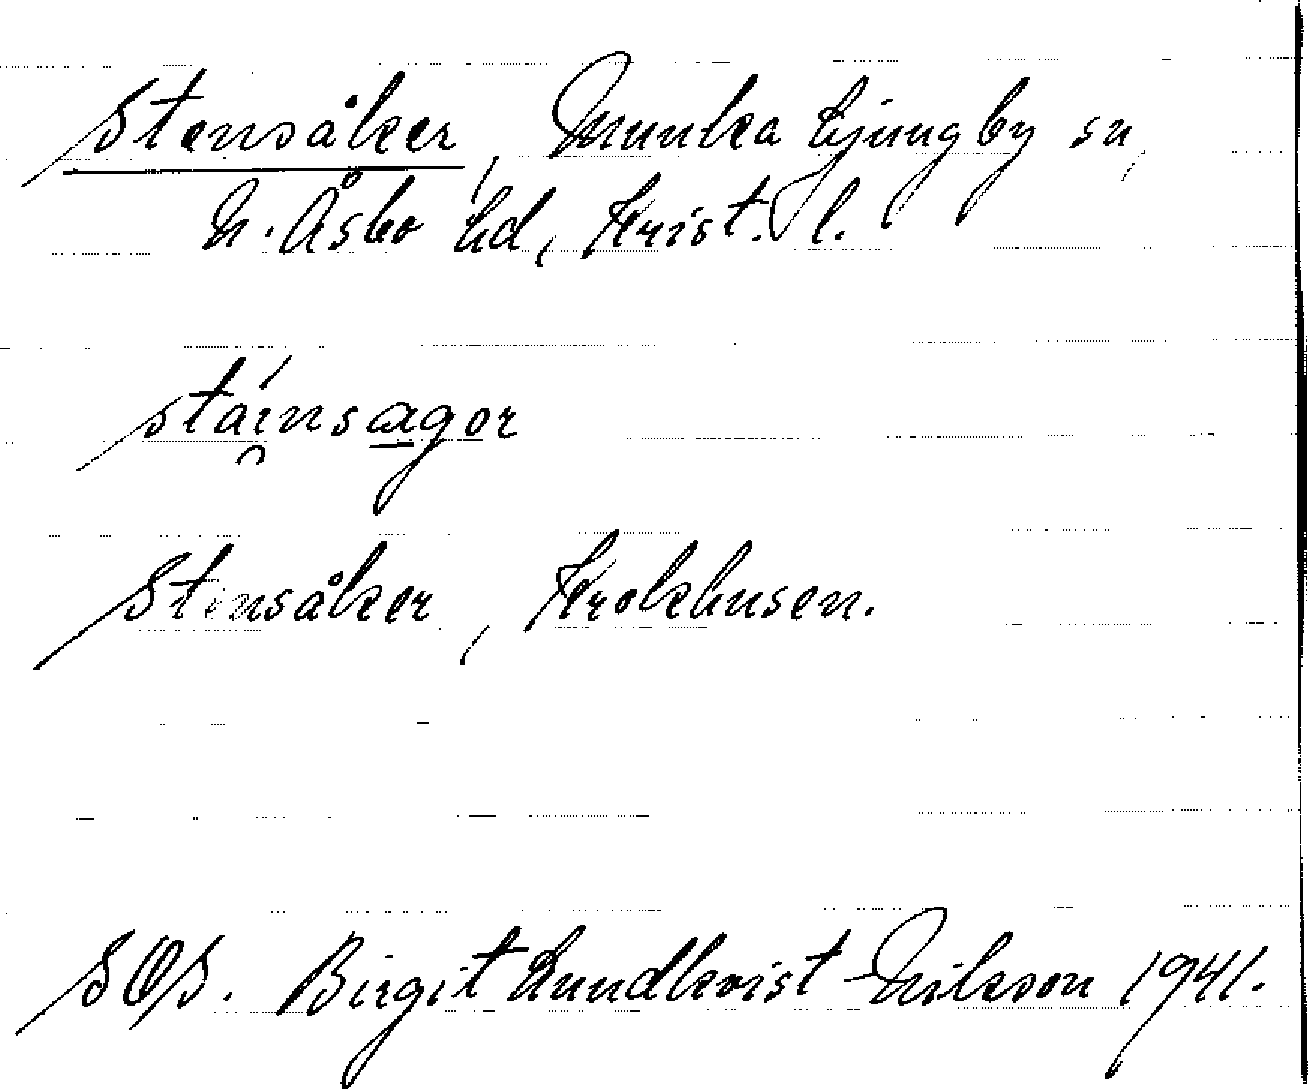 Stensåker, Munka Ljungby sn,
N. Åsbo hd, Krist. l.
stáinsagor
Stensåker, Krokhusen.
SOS. Birgit Lundkvist-Nilsson 1941.